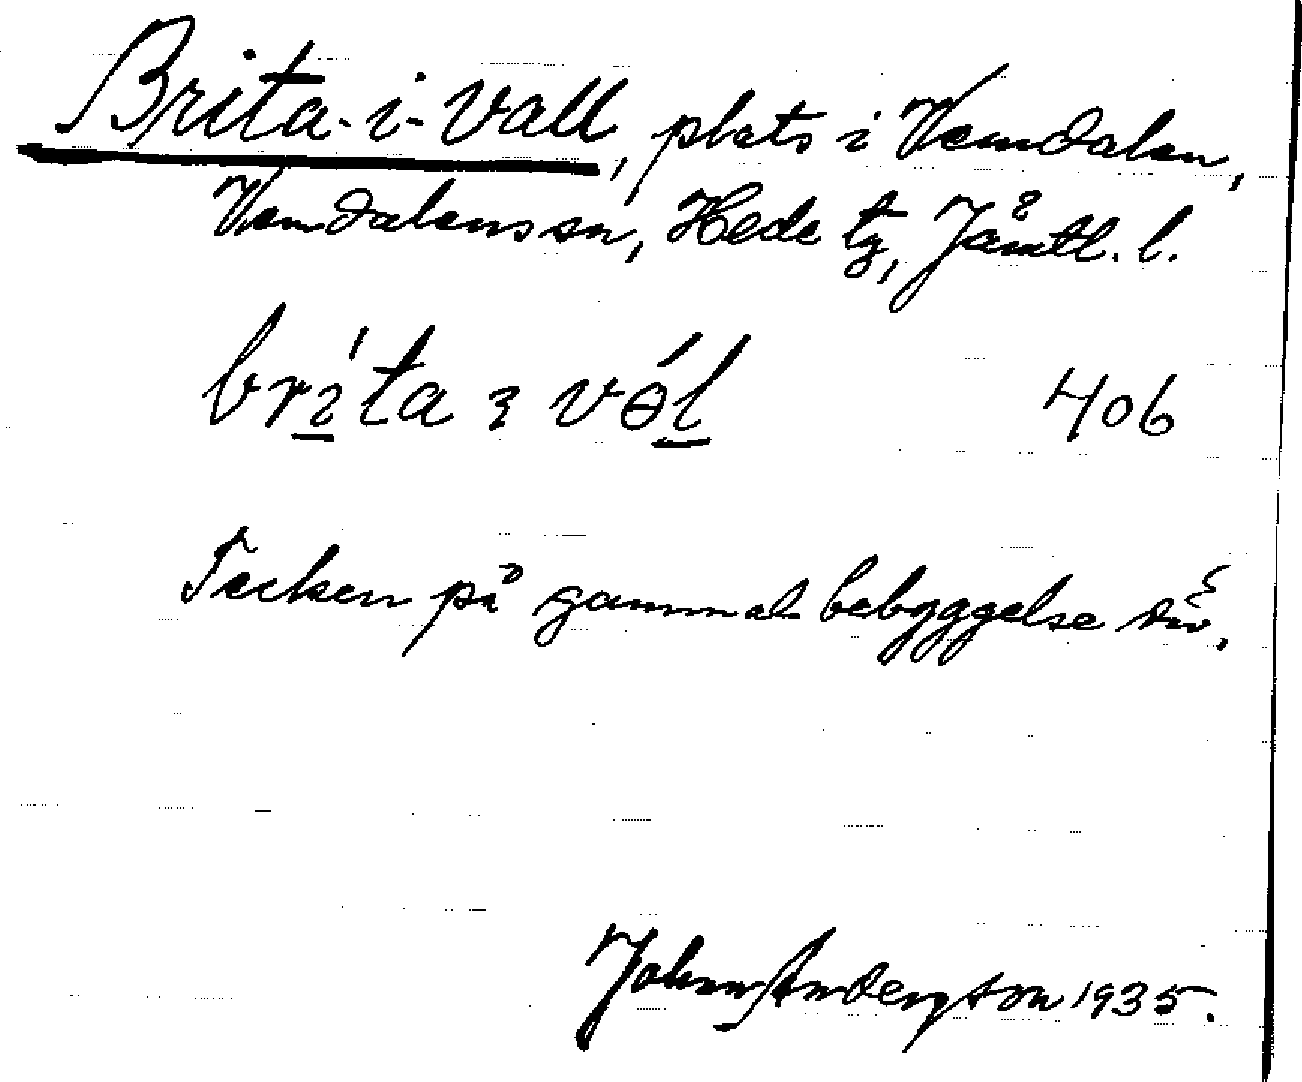 Brita-i-Vall, plats i Vemdalen,
Vemdalens sn, Hede tg, Jämtl. l.
bríta ı vɵ́l 406
Tecken på gammal bebyggelse
John Anderzton 1935.